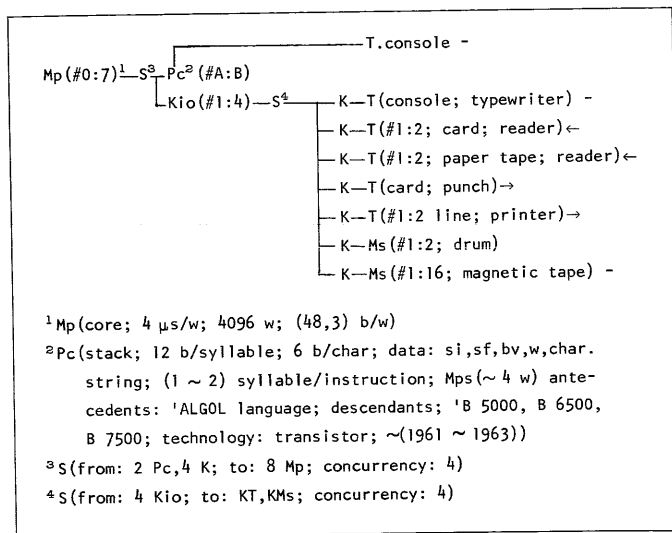 T.console -
Mp(#0:7)¹—S³—Pc²(#A:B)
Kio(#1:4)—S⁴
K—T(console; typewriter) -
K—T(#1:2; card; reader)←
K—T(#1:2; paper tape; reader)←
K—T(card; punch)→
K—T(#1:2 line; printer)→
K—Ms(#1:2; drum)
K—Ms(#1:16; magnetic tape) -
¹Mp(core; 4 μs/w; 4096 w; (48,3) b/w)
²Pc(stack; 12 b/syllable; 6 b/char; data: si,sf,bv,w,char.
string; (1 ~ 2) syllable/instruction; Mps(~ 4 w) ante-
cedents: 'ALGOL language; descendants; 'B 5000, B 6500,
B 7500; technology: transistor; ~(1961 ~ 1963))
³S(from: 2 Pc,4 K; to: 8 Mp; concurrency: 4)
⁴S(from: 4 Kio; to: KT,KMs; concurrency: 4)